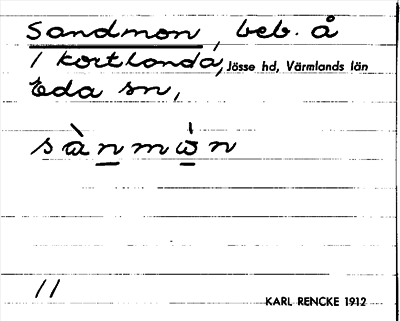 Sandmon, beb. å
1 kortlanda, Jösse hd, Värmlands län
Eda sn,
sànmòn
11
KARL RENCKE 1912